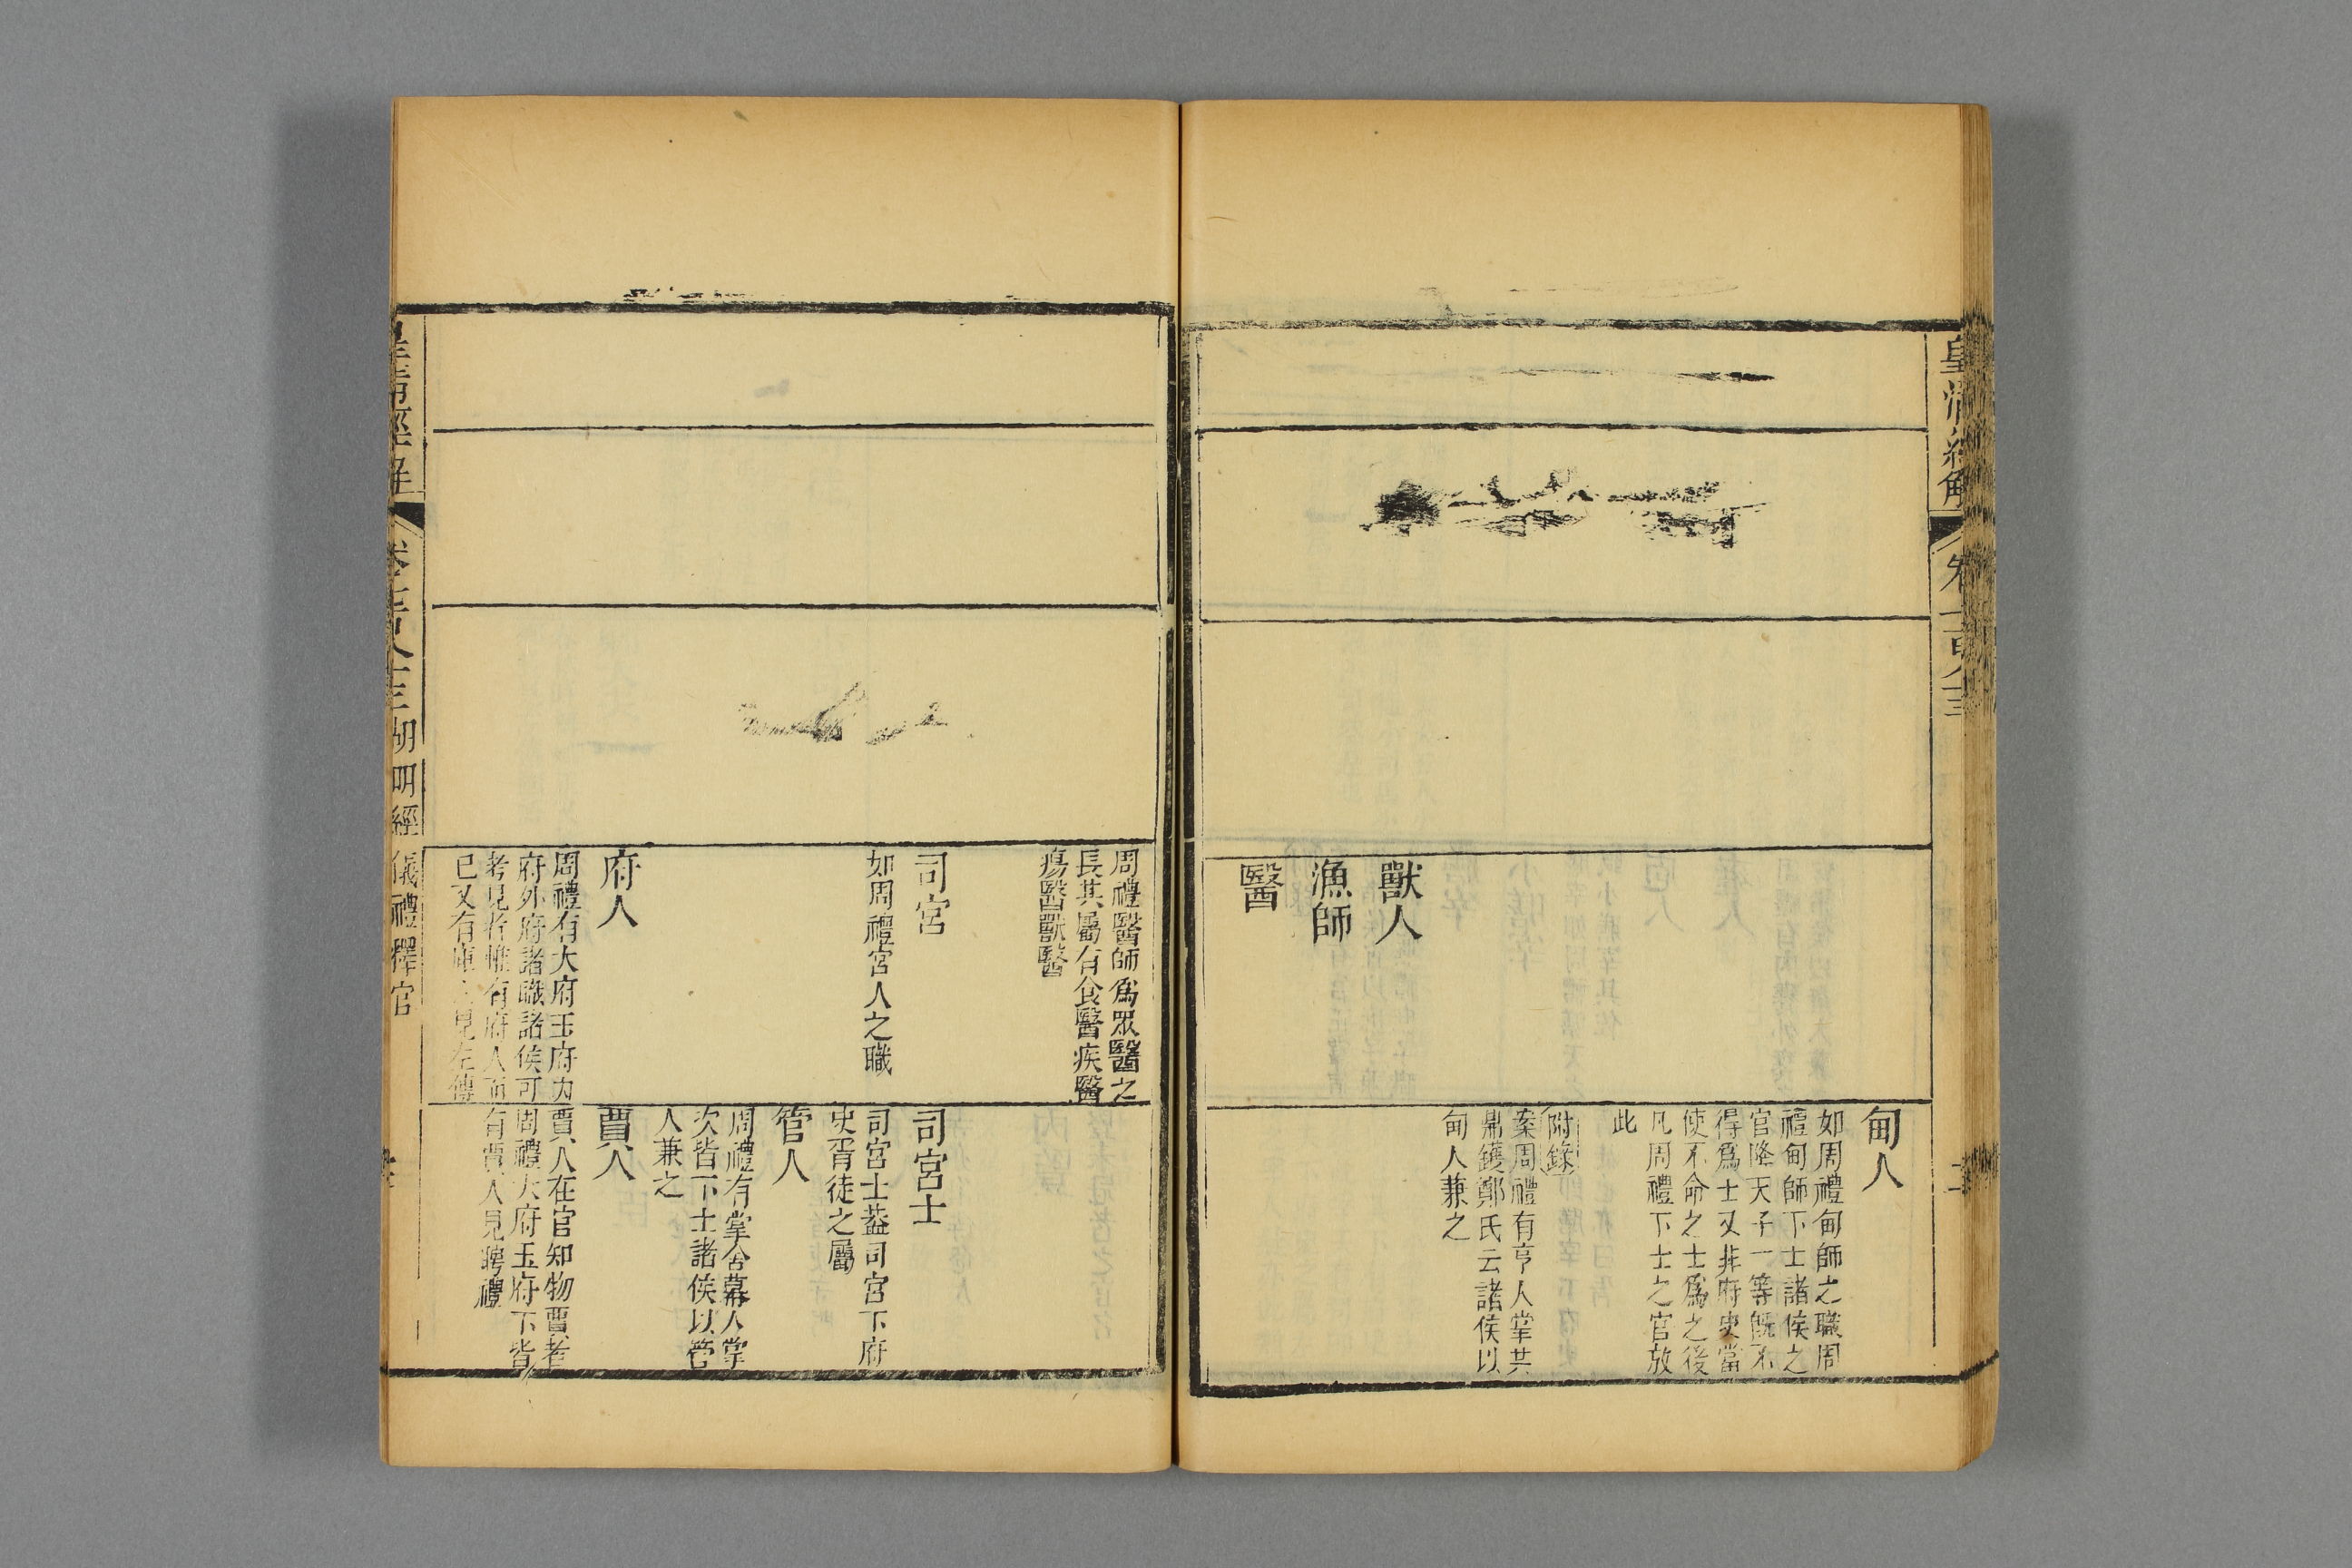 皇清經解
卷一百八十三
獸人
漁師
醫
甸人
如周禮甸師之職周
禮甸師下士諸侯之
官降天子一等既不
得爲士又非府史當
使不命之士爲之後
凡周禮下士之官放
此
附錄
案周禮有亨人掌共
鼎鑊鄭氏云諸侯以
甸人兼之
周禮醫師爲眾醫之
長其屬有食醫疾醫
瘍醫獸醫
司宮
如周禮宮人之職
府人
周禮有大府玉府內
府外府諸職諸侯可
考見者惟有府人而
已又有庫人見左傳
司宮士
司宮士葢司宮下府
史胥徒之屬
管人
周禮有掌舍幕人掌
次皆下士諸侯以管
人兼之
賈人
賈人在官知物賈者
周禮大府玉府下皆
有賈人見聘禮
皇清經解
胡明經儀禮釋官